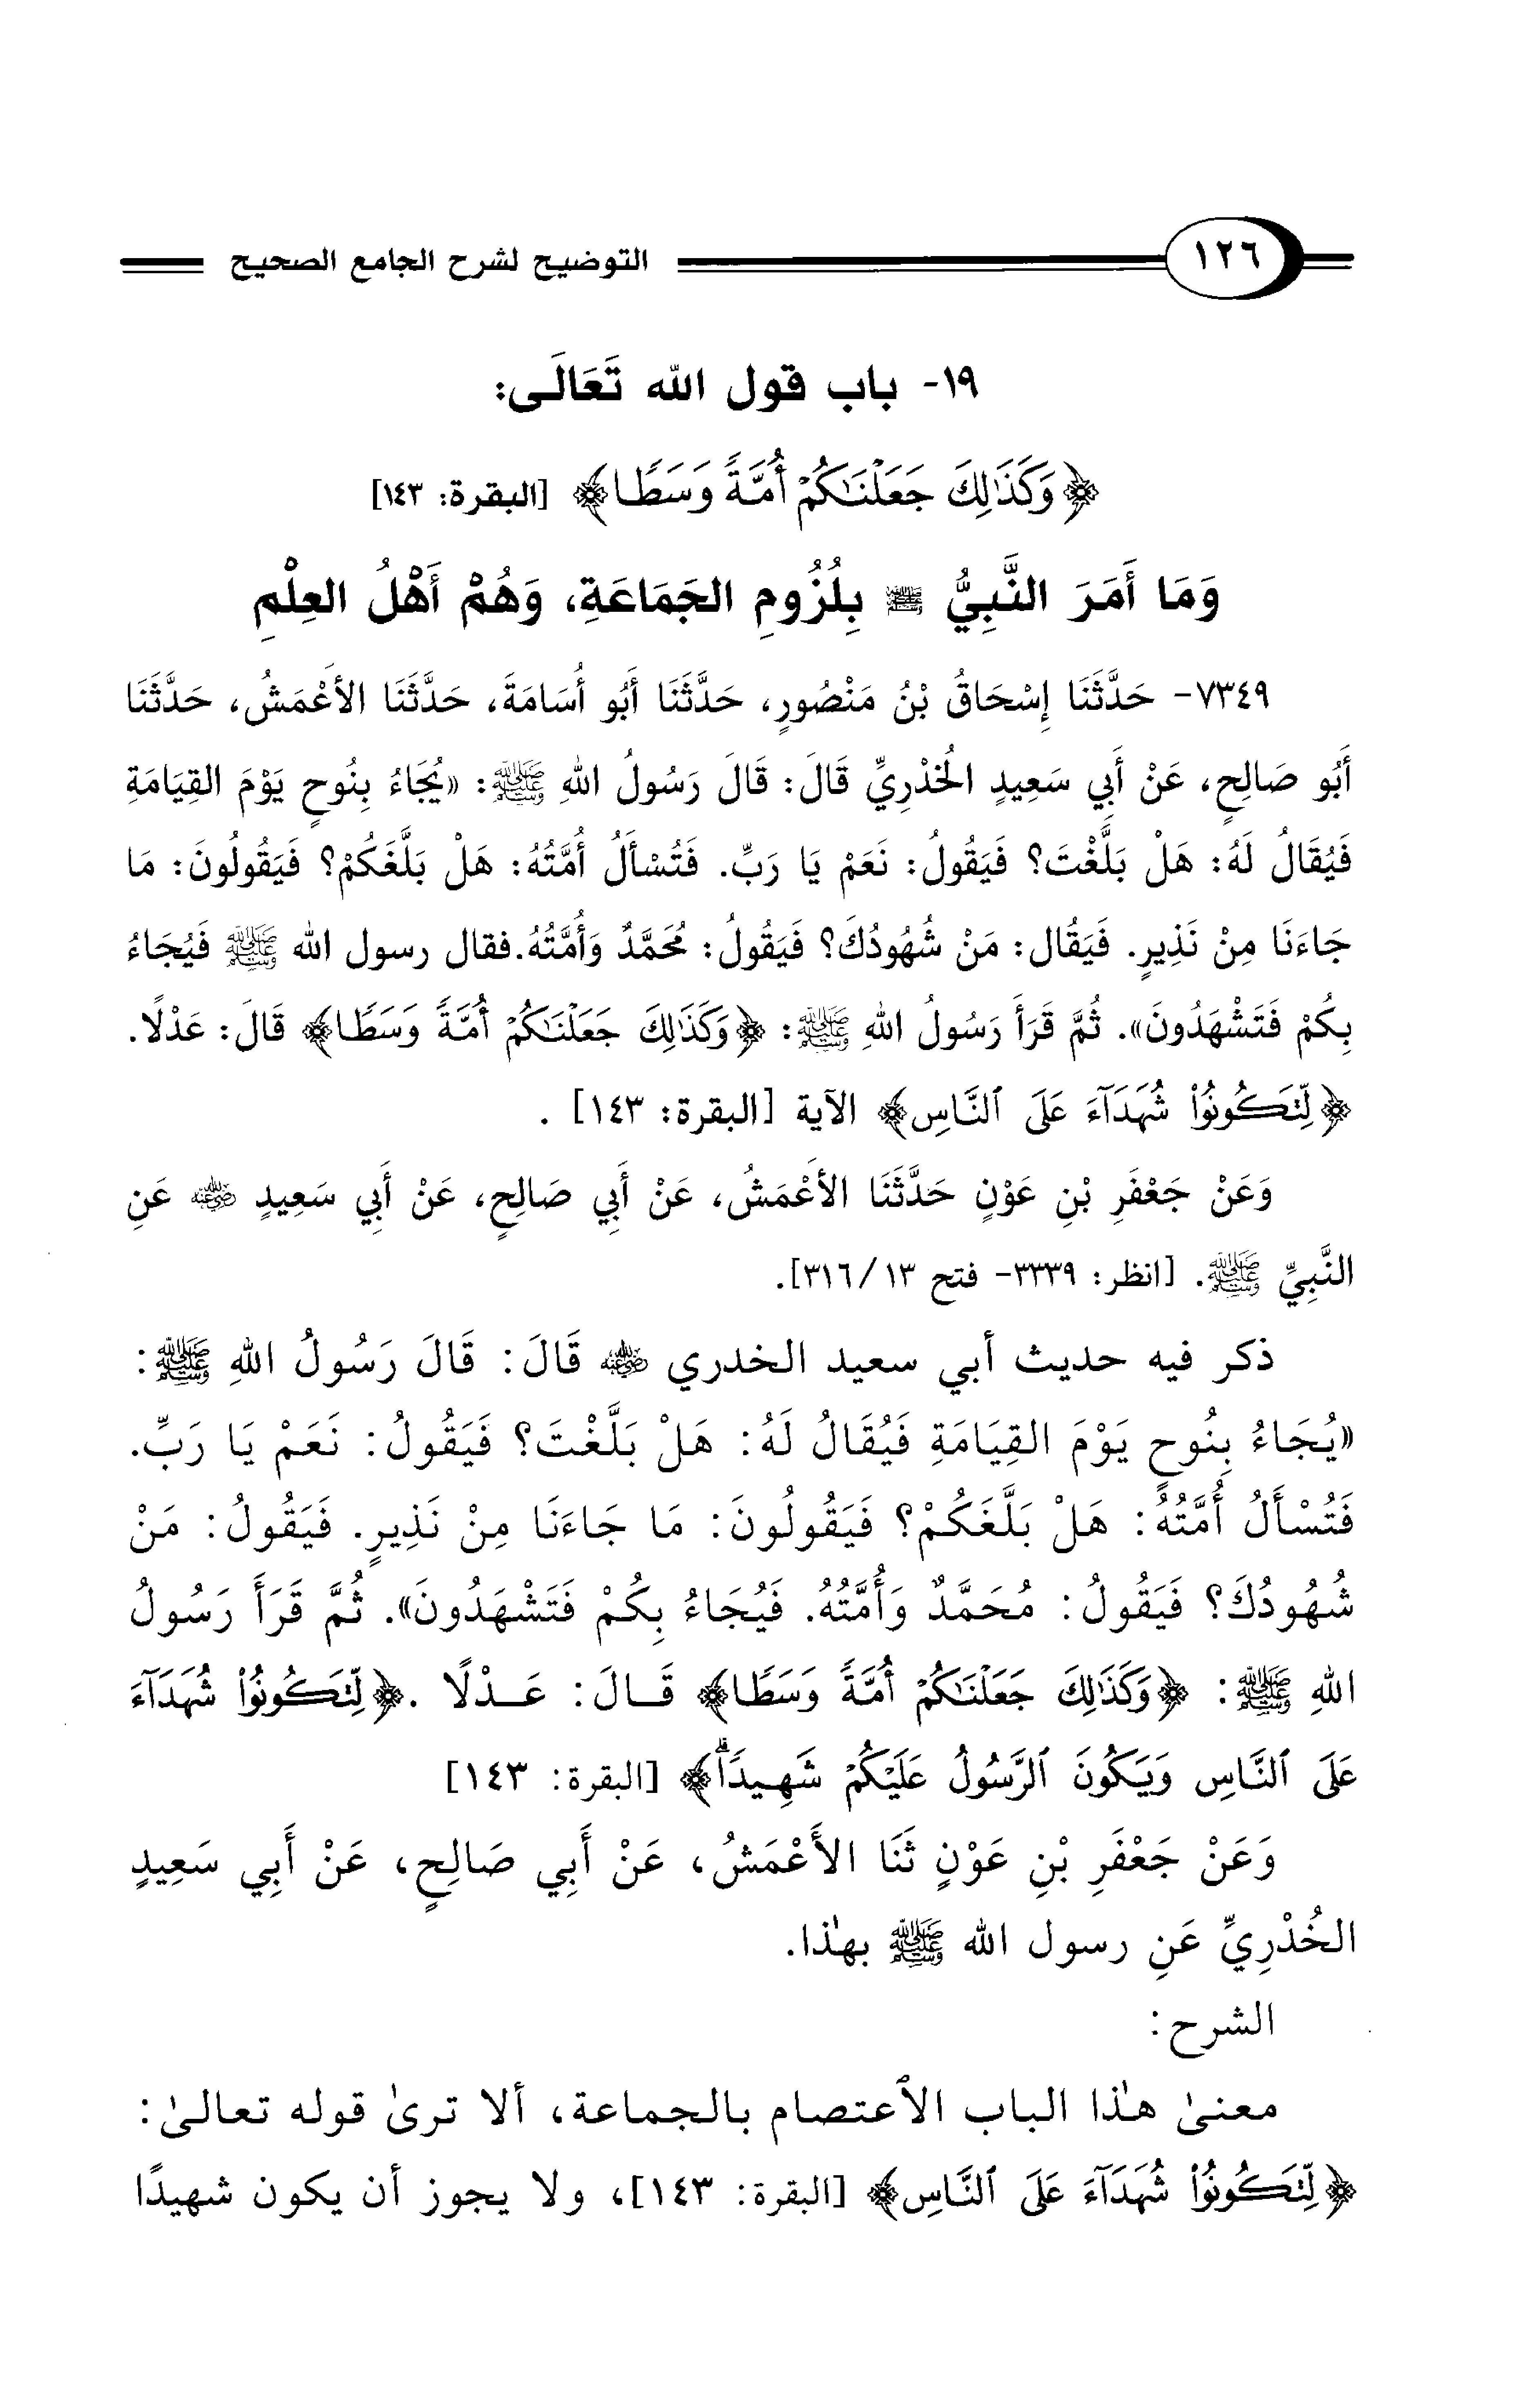 ١٢٦ التوضيح لشرح الجامع الصحيح
١٩- باب قول الله تَعَالَى:
﴿وَكَذَٰلِكَ جَعَلْنَٰكُمْ أُمَّةً وَسَطًا﴾ [البقرة: ١٤٣]
وَمَا أَمَرَ النَّبِيُّ ﷺ بِلُزُومِ الجَمَاعَةِ، وَهُمْ أَهْلُ العِلْمِ
٧٣٤٩- حَدَّثَنَا إِسْحَاقُ بْنُ مَنْصُورٍ، حَدَّثَنَا أَبُو أُسَامَةَ، حَدَّثَنَا الأَعْمَشُ، حَدَّثَنَا
أَبُو صَالِحٍ، عَنْ أَبِي سَعِيدٍ الخُدْرِيِّ قَالَ: قَالَ رَسُولُ اللهِ ﷺ: «يُجَاءُ بِنُوحٍ يَوْمَ القِيَامَةِ
فَيُقَالُ لَهُ: هَلْ بَلَّغْتَ؟ فَيَقُولُ: نَعَمْ يَا رَبِّ. فَتُسْأَلُ أُمَّتُهُ: هَلْ بَلَّغَكُمْ؟ فَيَقُولُونَ: مَا
جَاءَنَا مِنْ نَذِيرٍ. فَيَقُال: مَنْ شُهُودُكَ؟ فَيَقُولُ: مُحَمَّدٌ وَأُمَّتُهُ.فقال رسول الله ﷺ فَيُجَاءُ
بِكُمْ فَتَشْهَدُونَ». ثُمَّ قَرَأَ رَسُولُ اللهِ ﷺ: ﴿وَكَذَٰلِكَ جَعَلْنَٰكُمْ أُمَّةً وَسَطًا﴾ قَالَ: عَدْلًا.
﴿لِّتَكُونُوا۟ شُهَدَآءَ عَلَى ٱلنَّاسِ﴾ الآية [البقرة: ١٤٣] .
وَعَنْ جَعْفَرِ بْنِ عَوْنٍ حَدَّثَنَا الأَعْمَشُ، عَنْ أَبِي صَالِحٍ، عَنْ أَبِي سَعِيدٍ رضي الله عنه عَنِ
النَّبِيِّ ﷺ. [انظر: ٣٣٣٩- فتح ١٣/ ٣١٦].
ذكر فيه حديث أبي سعيد الخدري رضي الله عنه قَالَ: قَالَ رَسُولُ اللهِ ﷺ:
«يُجَاءُ بِنُوحٍ يَوْمَ القِيَامَةِ فَيُقَالُ لَهُ: هَلْ بَلَّغْتَ؟ فَيَقُولُ: نَعَمْ يَا رَبِّ.
فَتُسْأَلُ أُمَّتُهُ: هَلْ بَلَّغَكُمْ؟ فَيَقُولُونَ: مَا جَاءَنَا مِنْ نَذِيرٍ. فَيَقُولُ: مَنْ
شُهُودُكَ؟ فَيَقُولُ: مُحَمَّدٌ وَأُمَّتُهُ. فَيُجَاءُ بِكُمْ فَتَشْهَدُونَ». ثُمَّ قَرَأَ رَسُولُ
اللهِ ﷺ: ﴿وَكَذَٰلِكَ جَعَلْنَٰكُمْ أُمَّةً وَسَطًا﴾ قَالَ: عَدْلًا .﴿لِّتَكُونُوا۟ شُهَدَآءَ
عَلَى ٱلنَّاسِ وَيَكُونَ ٱلرَّسُولُ عَلَيْكُمْ شَهِيدًاۗ﴾ [البقرة: ١٤٣]
وَعَنْ جَعْفَرِ بْنِ عَوْنٍ ثَنَا الأَعْمَشُ، عَنْ أَبِي صَالِحٍ، عَنْ أَبِي سَعِيدٍ
الخُدْرِيِّ عَنِ رسول الله ﷺ بهٰذا.
الشرح:
معنىٰ هٰذا الباب الٱعتصام بالجماعة، ألا ترىٰ قوله تعالىٰ:
﴿لِّتَكُونُوا۟ شُهَدَآءَ عَلَى ٱلنَّاسِ﴾ [البقرة: ١٤٣]، ولا يجوز أن يكون شهيدًا